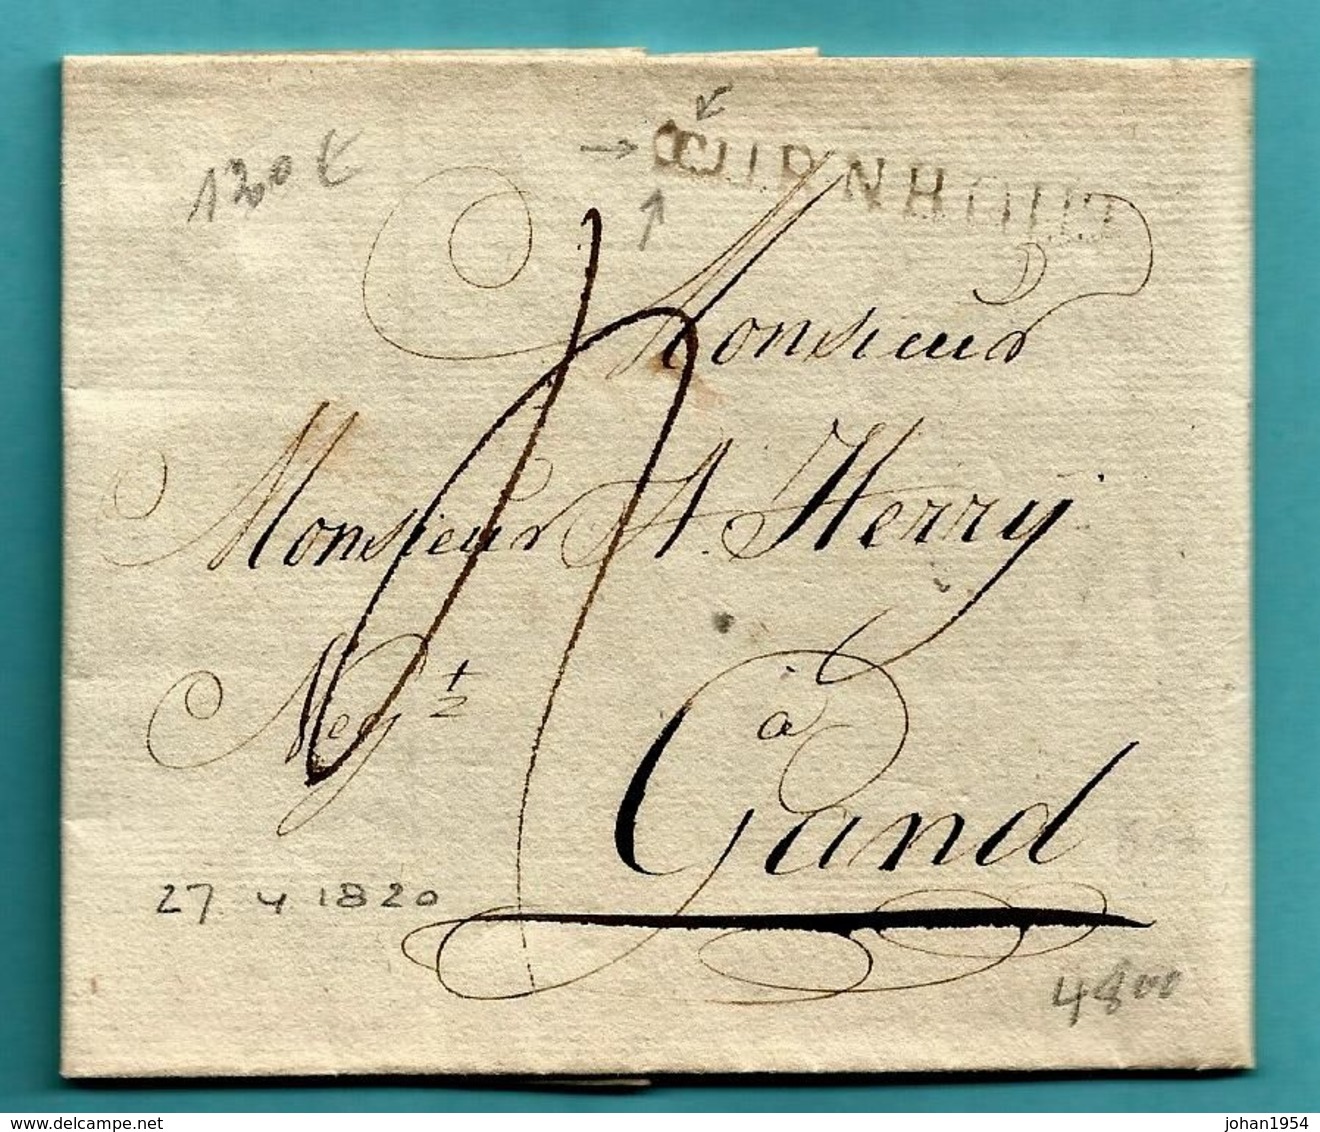 120 €
TURNHOUT
Monsieur
Monsieur A. Herry
Neg t
à
Gand
27 4 1820
4800
www.delcampe.net
johan1954